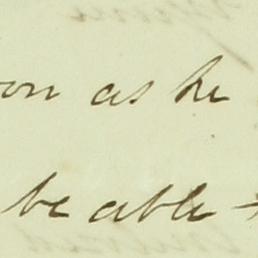 on as he
be able